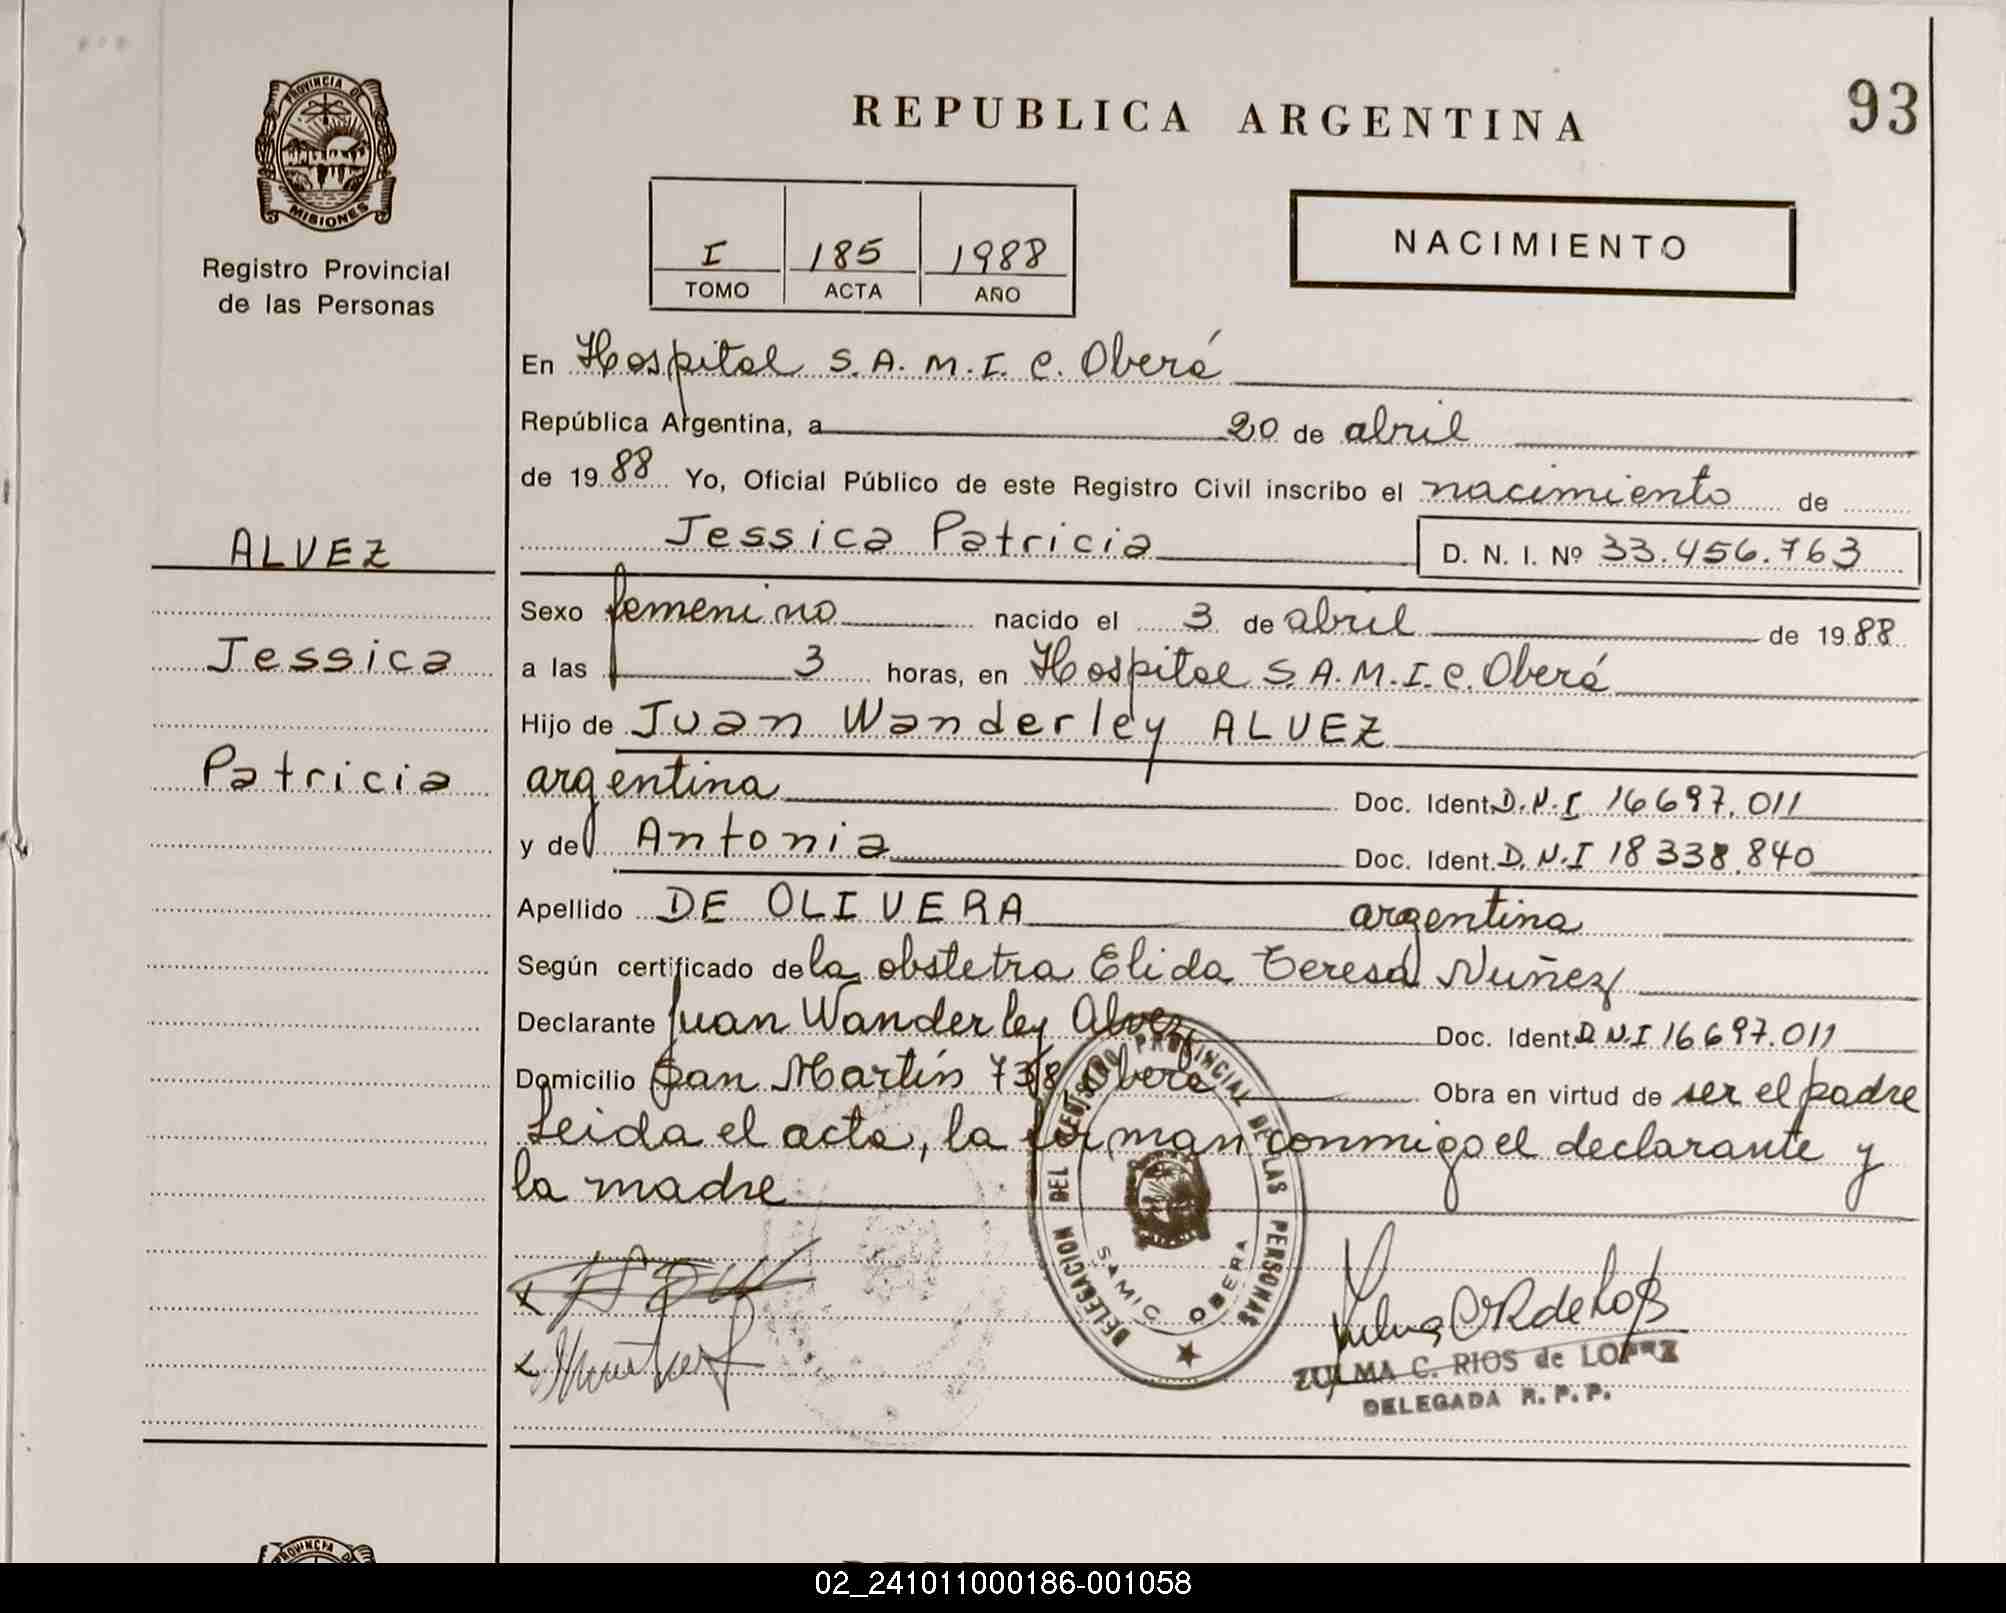 93
PROVINCIA DE
MISIONES
Registro Provincial
de las Personas
REPUBLICA ARGENTINA
I 185 1988
TOMO ACTA AÑO
NACIMIENTO
En Hospital S.A.M.I.C. Oberá
República Argentina, a 20 de abril
de 1988 Yo, Oficial Público de este Registro Civil inscribo el nacimiento de
Jessica Patricia D. N. I. Nº 33.456.763
ALVEZ
Jessica
Patricia
Sexo femenino nacido el 3 de abril de 1988
a las 3 horas, en Hospital S.A.M.I.C. Oberá
Hijo de Juan Wanderley ALVEZ
argentina Doc. Ident. D.N.I 16697.011
y de Antonia Doc. Ident. D.N.I 18338.840
Apellido DE OLIVERA argentina
Según certificado de la obstetra Elida Teresa Nuñez
Declarante Juan Wanderley Alvez Doc. Ident. D.N.I 16697.011
Domicilio San Martín 738 Oberá Obra en virtud de ser el padre
Leida el acta, la firman conmigo el declarante y
la madre
DELEGACION DEL REGISTRO PROVINCIAL DE LAS PERSONAS
SAMIC OBERA
ZULMA C. RIOS de LOPEZ
DELEGADA R.P.P.
PROVINCIA DE
02_241011000186-001058